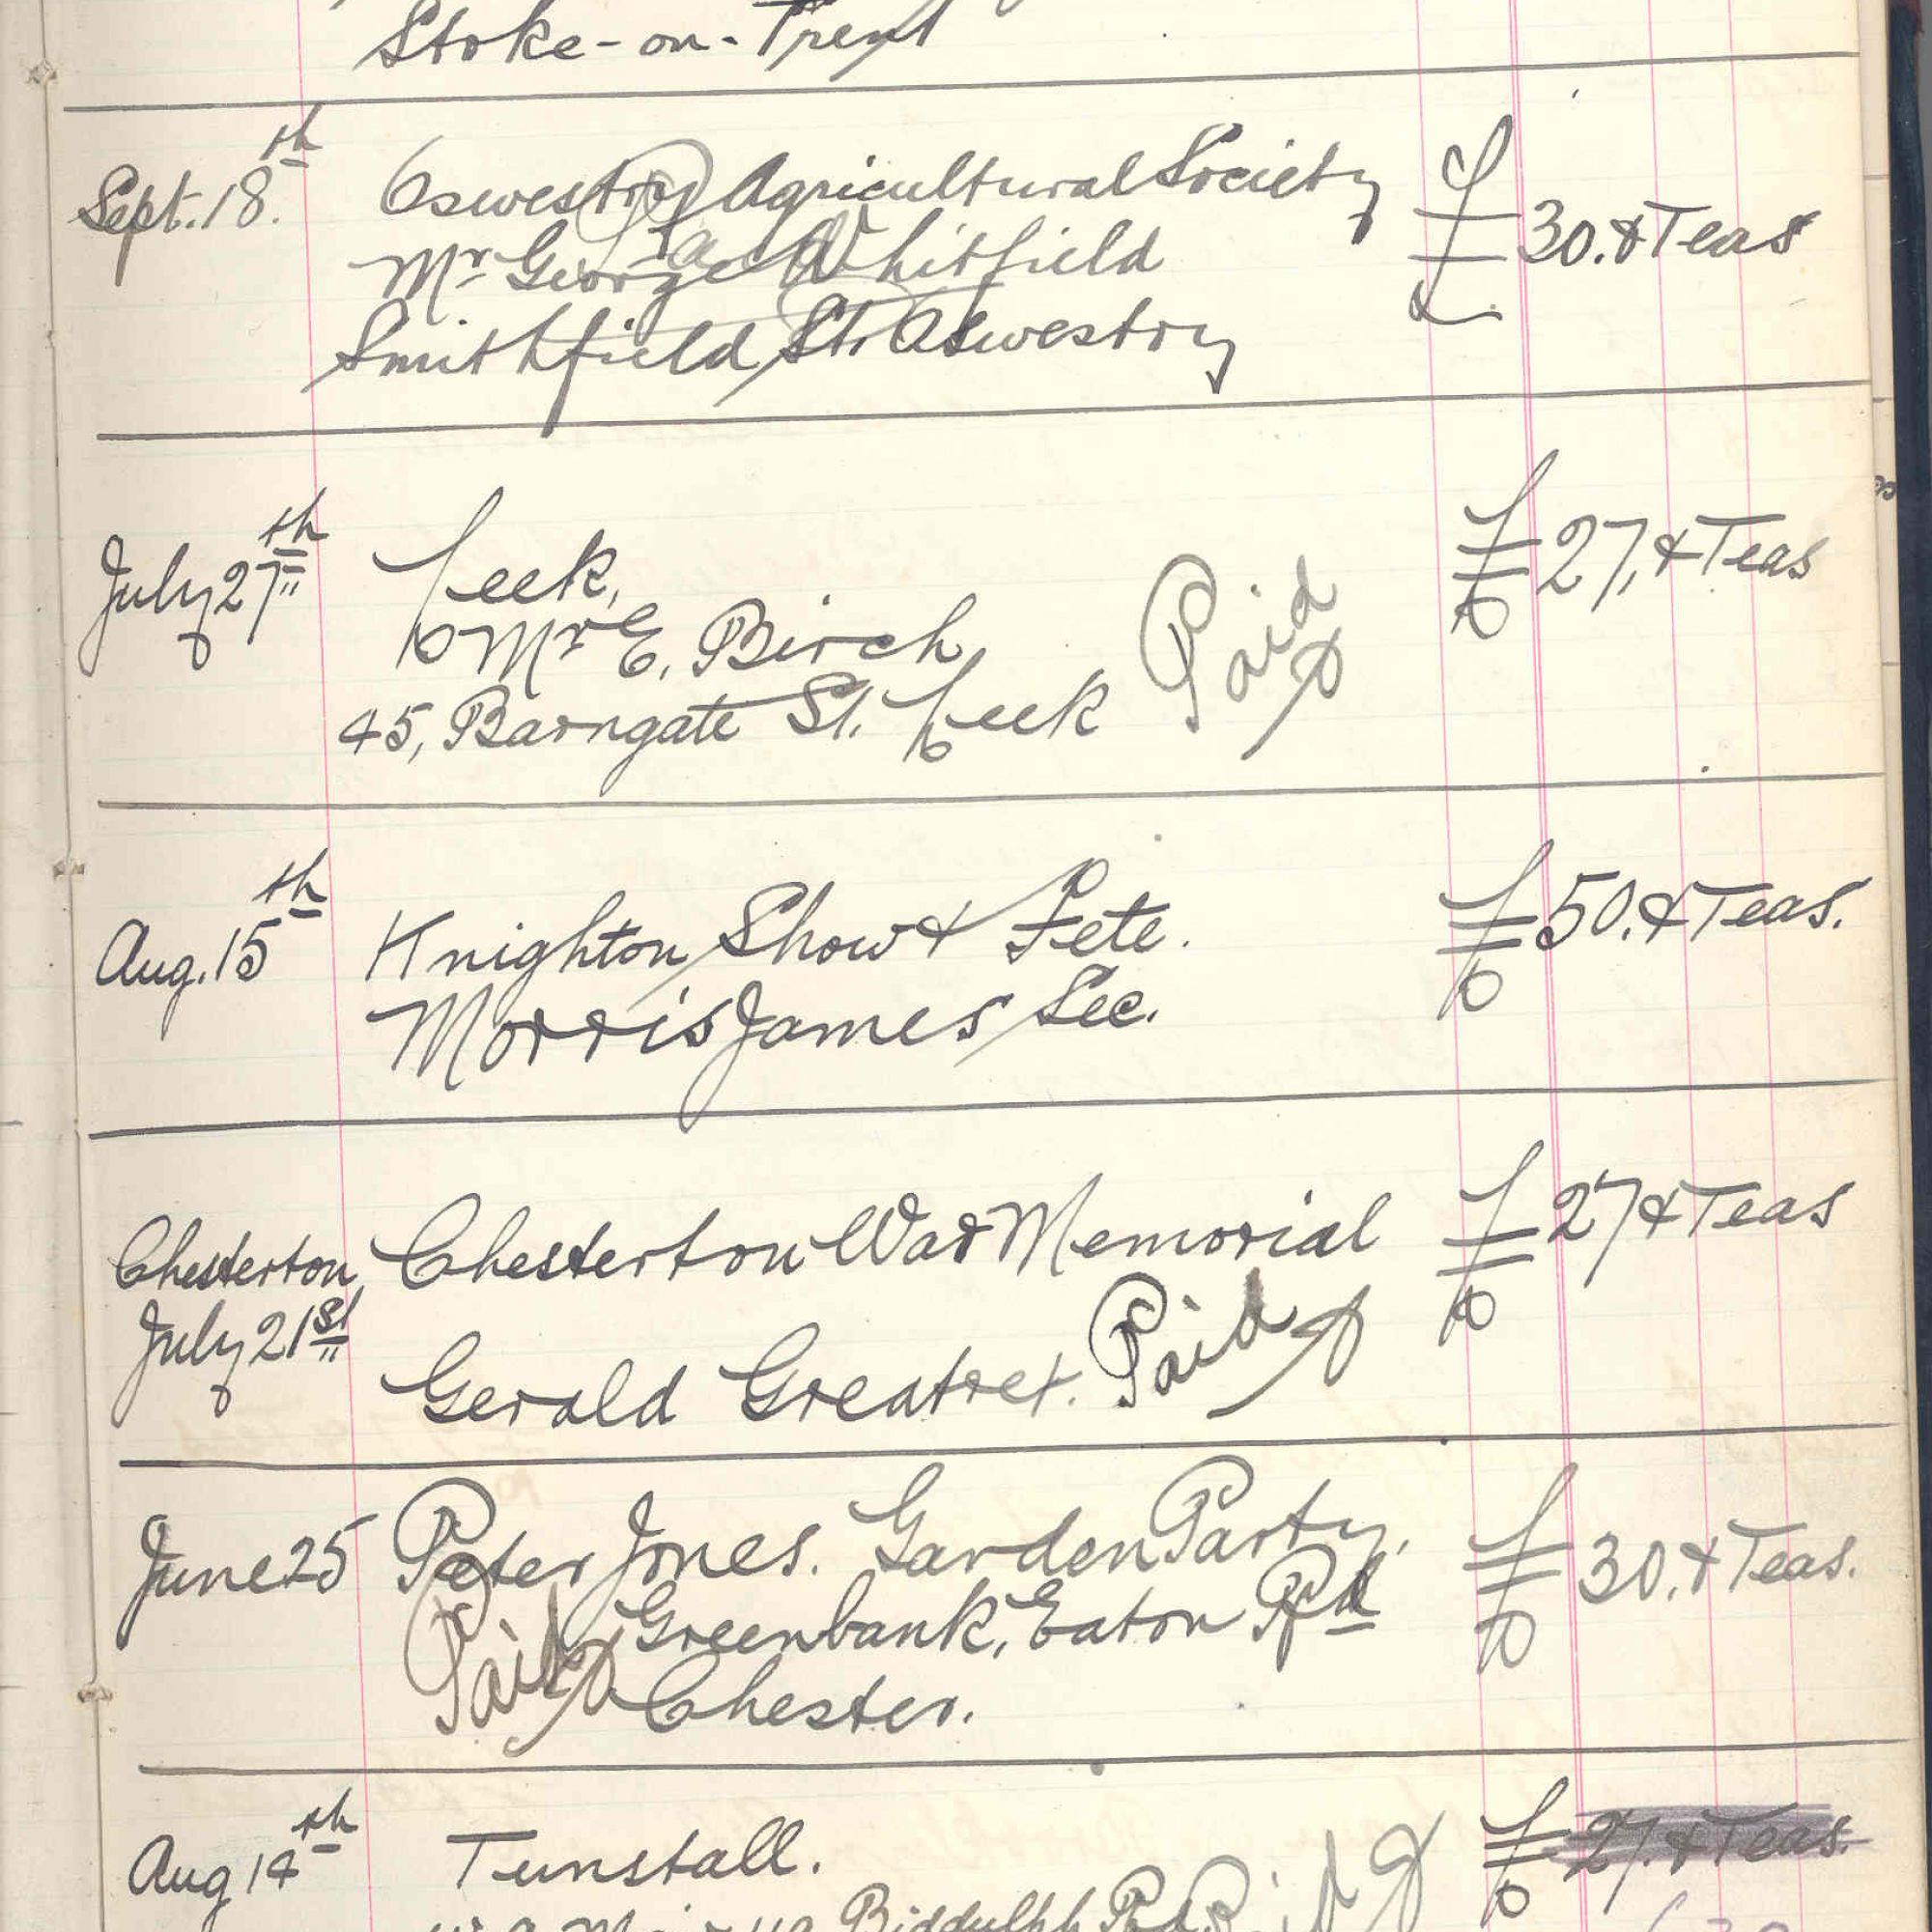 Stoke-on-Trent
Sept. 18th Oswestry Agricultural Society £30. & Teas
Mr George Whitfield
Smithfield St. Oswestry
Paid
July 27th Leek, £27, & Teas
Mr E. Birch
45, Barngate St. Leek
Paid
Aug. 15th Knighton Show & Fete. £50. & Teas.
Morris James Sec.
Chesterton July 21st Chesterton War Memorial £27 & Teas
Gerald Greatrex. Paid
June 25 Peter Jones. Garden Party, £30. & Teas.
Greenbank, Eaton Rd
Chester.
Paid
Aug 14th Tunstall. £27. & Teas.
Biddulph Rd. Paid